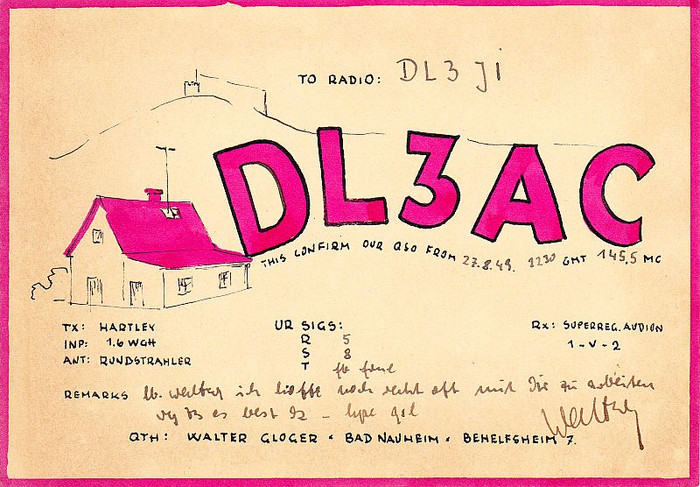 TO RADIO: DL3JI
DL3AC
THIS CONFIRM OUR QSO FROM 27.8.49. 1230 GMT 145,5 MC
TX: HARTLEY
INP: 1.6 WGH
ANT: RUNDSTRAHLER
UR SIGS:
R 5
S 8
T fb fone
RX: SUPERREG. AUDION
1-V-2
REMARKS lb. ich hoffe noch recht oft mit Dir zu arbeiten
vy 73 es best dx -
QTH: WALTER GLOGER · BAD NAUHEIM · BEHELFSHEIM 7.